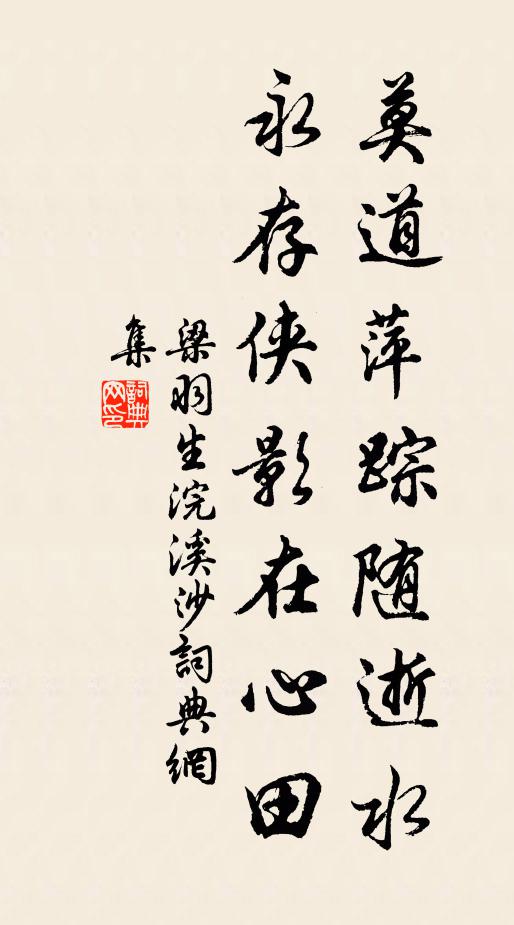 莫道萍踪随逝水
永存侠影在心田
梁羽生浣溪沙詞典網
集
詞典
网印